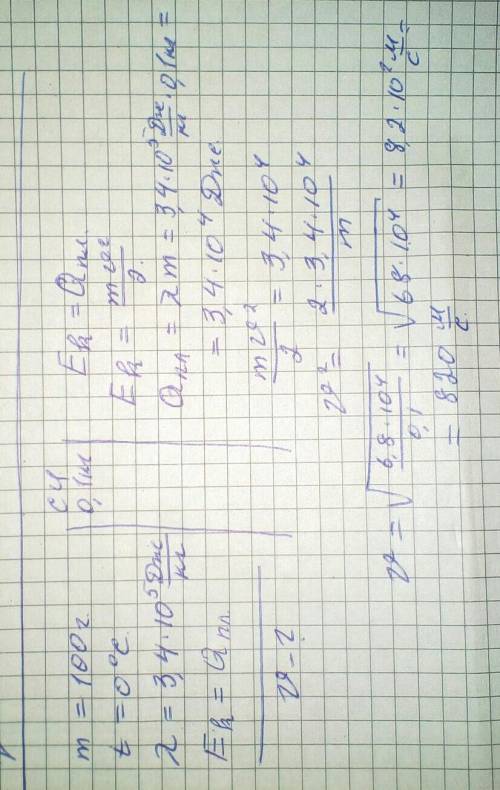 m = 100 г
t = 0°С
λ = 3,4·10⁵ Дж/кг
Eк = Qпл.
υ - ?
СИ
0,1 кг
Eк = Qпл.
Eк = mυ²/2
Qпл = λm = 3,4·10⁵ Дж/кг · 0,1 кг =
= 3,4·10⁴ Дж.
mυ²/2 = 3,4·10⁴
υ² = 2·3,4·10⁴/m
υ = √(6,8·10⁴/0,1) = √(68·10⁴) = 8,2·10² м/с =
= 820 м/с